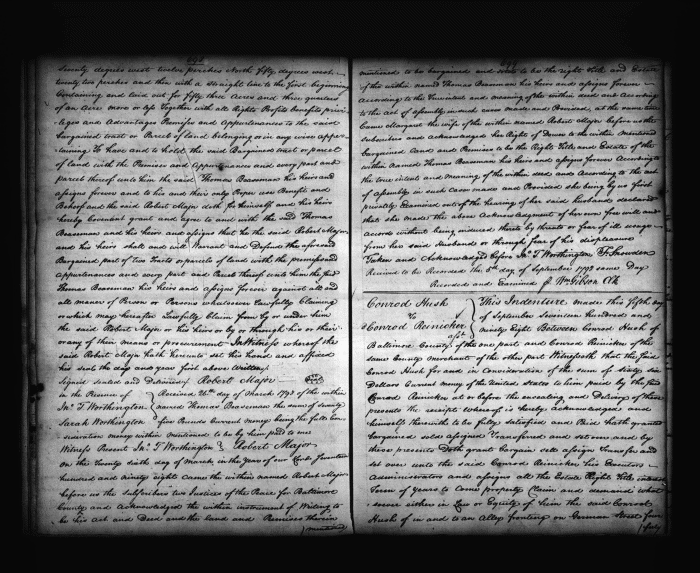 Seventy degrees west twelve perches North fifty degrees west
twenty two perches and then with a straight line to the first beginning
Containing and laid out for fifty three Acres and three quarters
of an Acre more or less Together with all Rights Profits Benefits privi-
leges and Advantages Premises and Appurtenances to the said
bargained tract or Parcel of land belonging or in any wise apper-
taining To have and to hold the said Bargained tract or parcel
of land with the Premises and Appurtenances and every part and
parcel thereof unto him the said Thomas Baseman his heirs and
assigns forever and to his and their only Proper use Benefit and
Behoof and the said Robert Major doth for himself and his heirs
hereby Covenant grant and agree to and with the said Thomas
Baseman and his heirs and assigns that he the said Robert Major
and his heirs shall and will Warrant and Defend the aforesaid
Bargained part of two Tracts or parcels of land with the premises and
appurtenances and every part and Parcel thereof unto him the said
Thomas Baseman his heirs and assigns forever against all and
all manner of Person or Persons whatsoever Lawfully Claiming
or which may hereafter Lawfully Claim from by or under him
the said Robert Major or his heirs or by or through his or their
or any of them means or procurement In Witness whereof the
said Robert Major hath hereunto set his hand and affixed
his seal the day and year first above Written
Signed sealed and Delivered Robert Major
in the Presence of Received 26th day of March 1798 of the within
Jno. T Worthington named Thomas Baseman the sum of twenty
Sarah Worthington five Pounds Current money being the full con-
sideration money within mentioned to be by him paid to me
Witness Present Jno. T Worthington Robert Major
on the Twenty sixth day of march in the year of our Lord Seventeen
hundred and ninety eight Came the within named Robert Major
before us the Subscribers two Justices of the Peace for Baltimore
County and Acknowledged the within instrument of Writing to
be his Act and Deed and the land and Premises therein
mentioned
mentioned to be bargained and sold to be the right Title and Estate
of the within named Thomas Baseman his heirs and assigns forever
According to the true intent and meaning of the within deed and According
to the act of assembly in such case made and Provided, at the same time
Came Margaret the wife of the within named Robert Major before us the
subscribers and acknowledged her Right of Dower to the within mentioned
bargained Land and Premises to be the Right Title and Estate of the
within named Thomas Baseman his heirs and assigns forever According to
the true intent and meaning of the within deed and According to the act
of assembly in such Case made and Provided she being by us first
privately Examined out of the hearing of her said husband declared
that she made the above Acknowledgment of her own free will and
accord without being induced thereto by threats or fear of ill usage
from her said Husband or through fear of his displeasure
Taken and Acknowledged before Jno. T Worthington T. Snowden
Received to be Recorded the 5th day of September 1798 same Day
Recorded and Examined Wm Gibson Clk
Conrod Hush
to
Conrod Reinicker
This Indenture made this Fifth day
of September Seventeen hundred and
ninety Eight Between Conrod Hush of
Baltimore County of the one part and Conrod Reinicker of the
same County merchant of the other part Witnesseth that the said
Conrod Hush for and in Consideration of the sum of Sixty six
Dollars Current money of the United States to him paid by the said
Conrod Reinicker at or before the ensealing and Delivery of these
presents the receipt whereof is hereby Acknowledged and
himself therewith to be fully satisfied and Paid hath granted
bargained sold assigned Transferred and set over and by
these presents Doth grant Bargain sell assign Transfer and
set over unto the said Conrod Reinicker his Executors
Administrators and assigns all the Estate Right Title interest
Term of years to Come property Claim and demand what-
soever either in Law or Equity of him the said Conrod
Hush of in and to an Alley fronting on German Street four